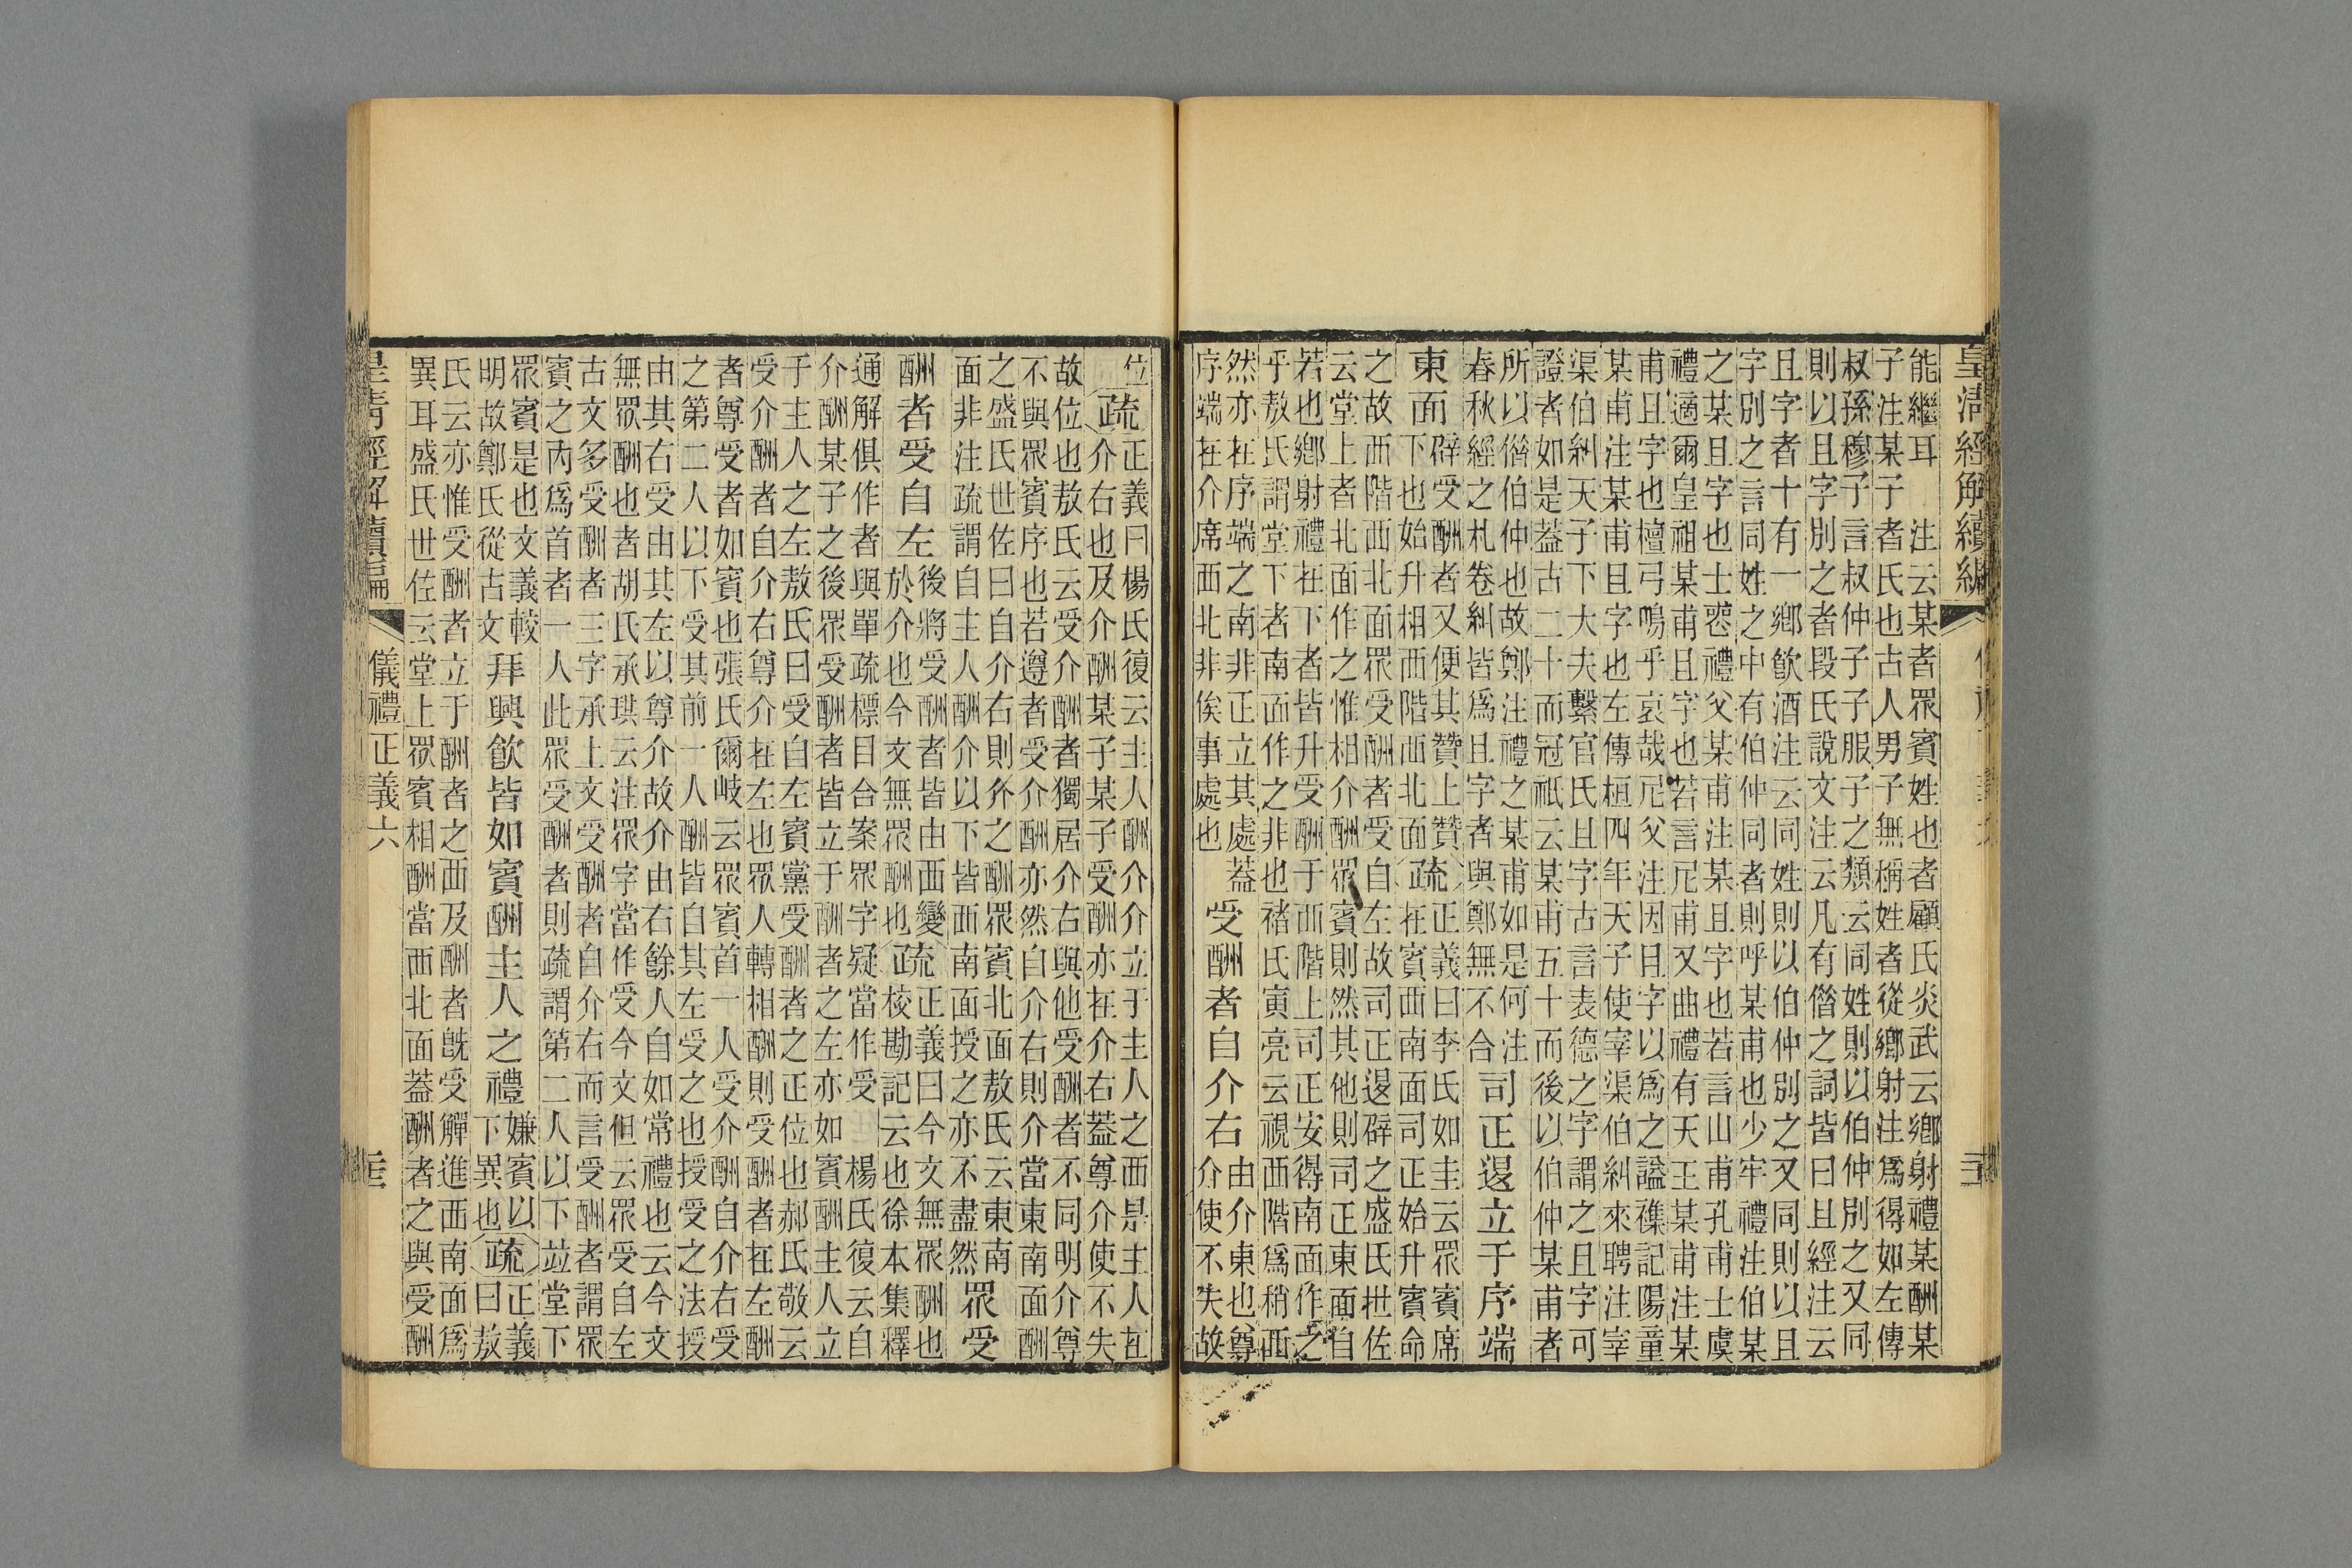 皇清經解續編
能繼耳　注云某者眾賓姓也者顧氏炎武云鄉射禮某酬某
子注某子者氏也古人男子無稱姓者從鄉射注爲得如左傳
叔孫穆子言叔仲子子服子之類云同姓則以伯仲別之又同
則以且字別之者段氏說文注云凡有偺之詞皆曰且經注云
且字者十有一鄉飮酒注云同姓則以伯仲別之又同則以且
字別之言同姓之中有伯仲同者則呼某甫也少牢禮注伯某
之某且字也士喪禮父某甫注某且字也若言山甫孔甫士虞
禮適爾皇祖某甫且字也若言尼甫又曲禮有天王某甫注某
甫且字也檀弓嗚乎哀哉尼父注因且字以爲之謚襍記陽童
某甫注某甫且字也左傳桓四年天子使宰渠伯糾來聘注宰
渠伯糾天子下大夫繫官氏且字古言表德之字謂之且字可
證者如是蓋古二十而冠祇云某甫五十而後以伯仲某甫者
所以偺伯仲也故鄭注禮之某甫如是何注
春秋經之札卷糾皆爲且字者與鄭無不合
司正退立于序端
東面
辟受酬者又便其贊上贊
下也始升相西階西北面
疏
正義曰李氏如圭云眾賓席
在賓西南面司正始升賓命
之故西階西北面眾受酬者受自左故司正退辟之盛氏世佐
云堂上者北面作之惟相介酬眾賓則然其他則司正東面自
若也鄉射禮在下者皆升受酬于西階上司正安得南面作之
乎敖氏謂堂下者南面作之非也褚氏寅亮云視西階爲稍西
然亦在序端之南非正立其處蓋
序端在介席西北非俟事處也
受酬者自介右
由介東也尊
介使不失故
位
疏
正義曰楊氏復云主人酬介介立于主人之西是主人在
介右也及介酬某子某子受酬亦在介右蓋尊介使不失
故位也敖氏云受介酬者獨居介右與他受酬者不同明介尊
不與眾賓序也若遵者受介酬亦然自介右則介當東南面酬
之盛氏世佐曰自介右則介之酬眾賓北面敖氏云東南
面非注疏謂自主人酬介以下皆西南面授之亦不盡然
眾受
酬者受自左
後將受酬者皆由西變
於介也今文無眾酬也
疏
正義曰今文無眾酬也
校勘記云也徐本集釋
通解俱作者與單疏標目合案眾字疑當作受　楊氏復云自
介酬某子之後眾受酬者皆立于酬者之左亦如賓酬主人立
于主人之左敖氏曰受自左賓黨受酬者之正位也郝氏敬云
受介酬者自介右尊介在左也眾人轉相酬則受酬者在左酬
者尊受者如賓也張氏爾岐云眾賓首一人受介酬自介右受
之第二人以下受其前一人酬皆自其左受之也授受之法授
由其右受由其左以尊介故介由右餘人自如常禮也云今文
無眾酬也者胡氏承珙云注眾字當作受今文但云眾受自左
古文多受酬者三字承上文受酬者自介右而言受酬者謂眾
賓之內爲首者一人此眾受酬者則疏謂第二人以下竝堂下
眾賓是也文義較
明故鄭氏從古文
拜興飮皆如賓酬主人之禮
嫌賓以
下異也
疏
正義
曰敖
氏云亦惟受酬者立于酬者之西及酬者既受觶進西南面爲
異耳盛氏世佐云堂上眾賓相酬當西北面蓋酬者之與受酬
皇清經解續編
儀禮正義六